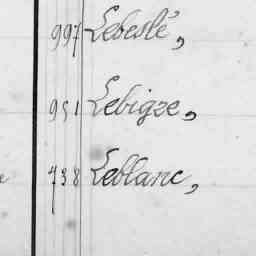 997 Lebeslé,
951 Lebigze,
738 Leblanc,